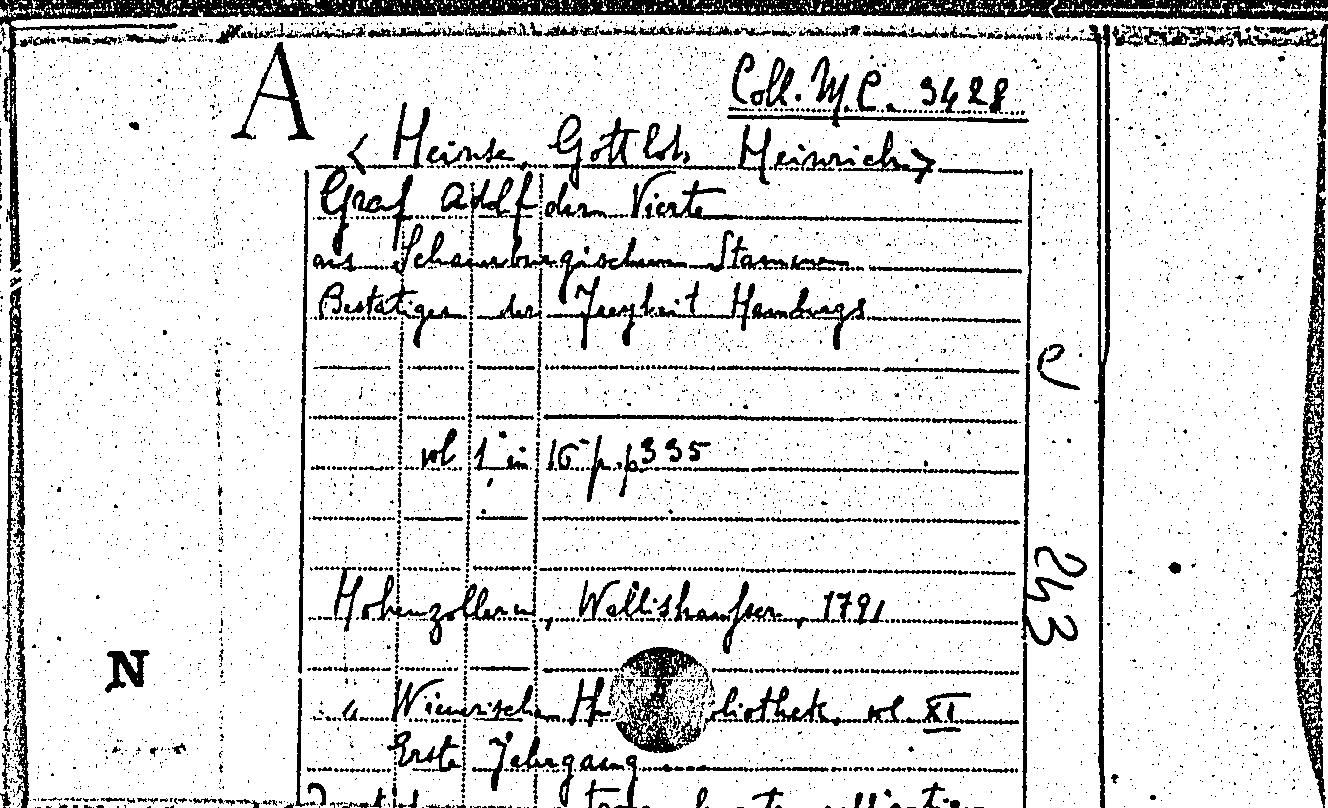 A
Coll. M.C. 3428
< Heinse, Gottlob Heinrich >
Graf Adolf der Vierte
aus Schauenburgischem Stamme
Bestätiger der Freyheit Hamburgs
e
vol 1 in 16 pp 335
243
Hohenzollern, Wallishausser, 1791
N
" Wienerische liothek, vol. XI
Erste Jahrgang